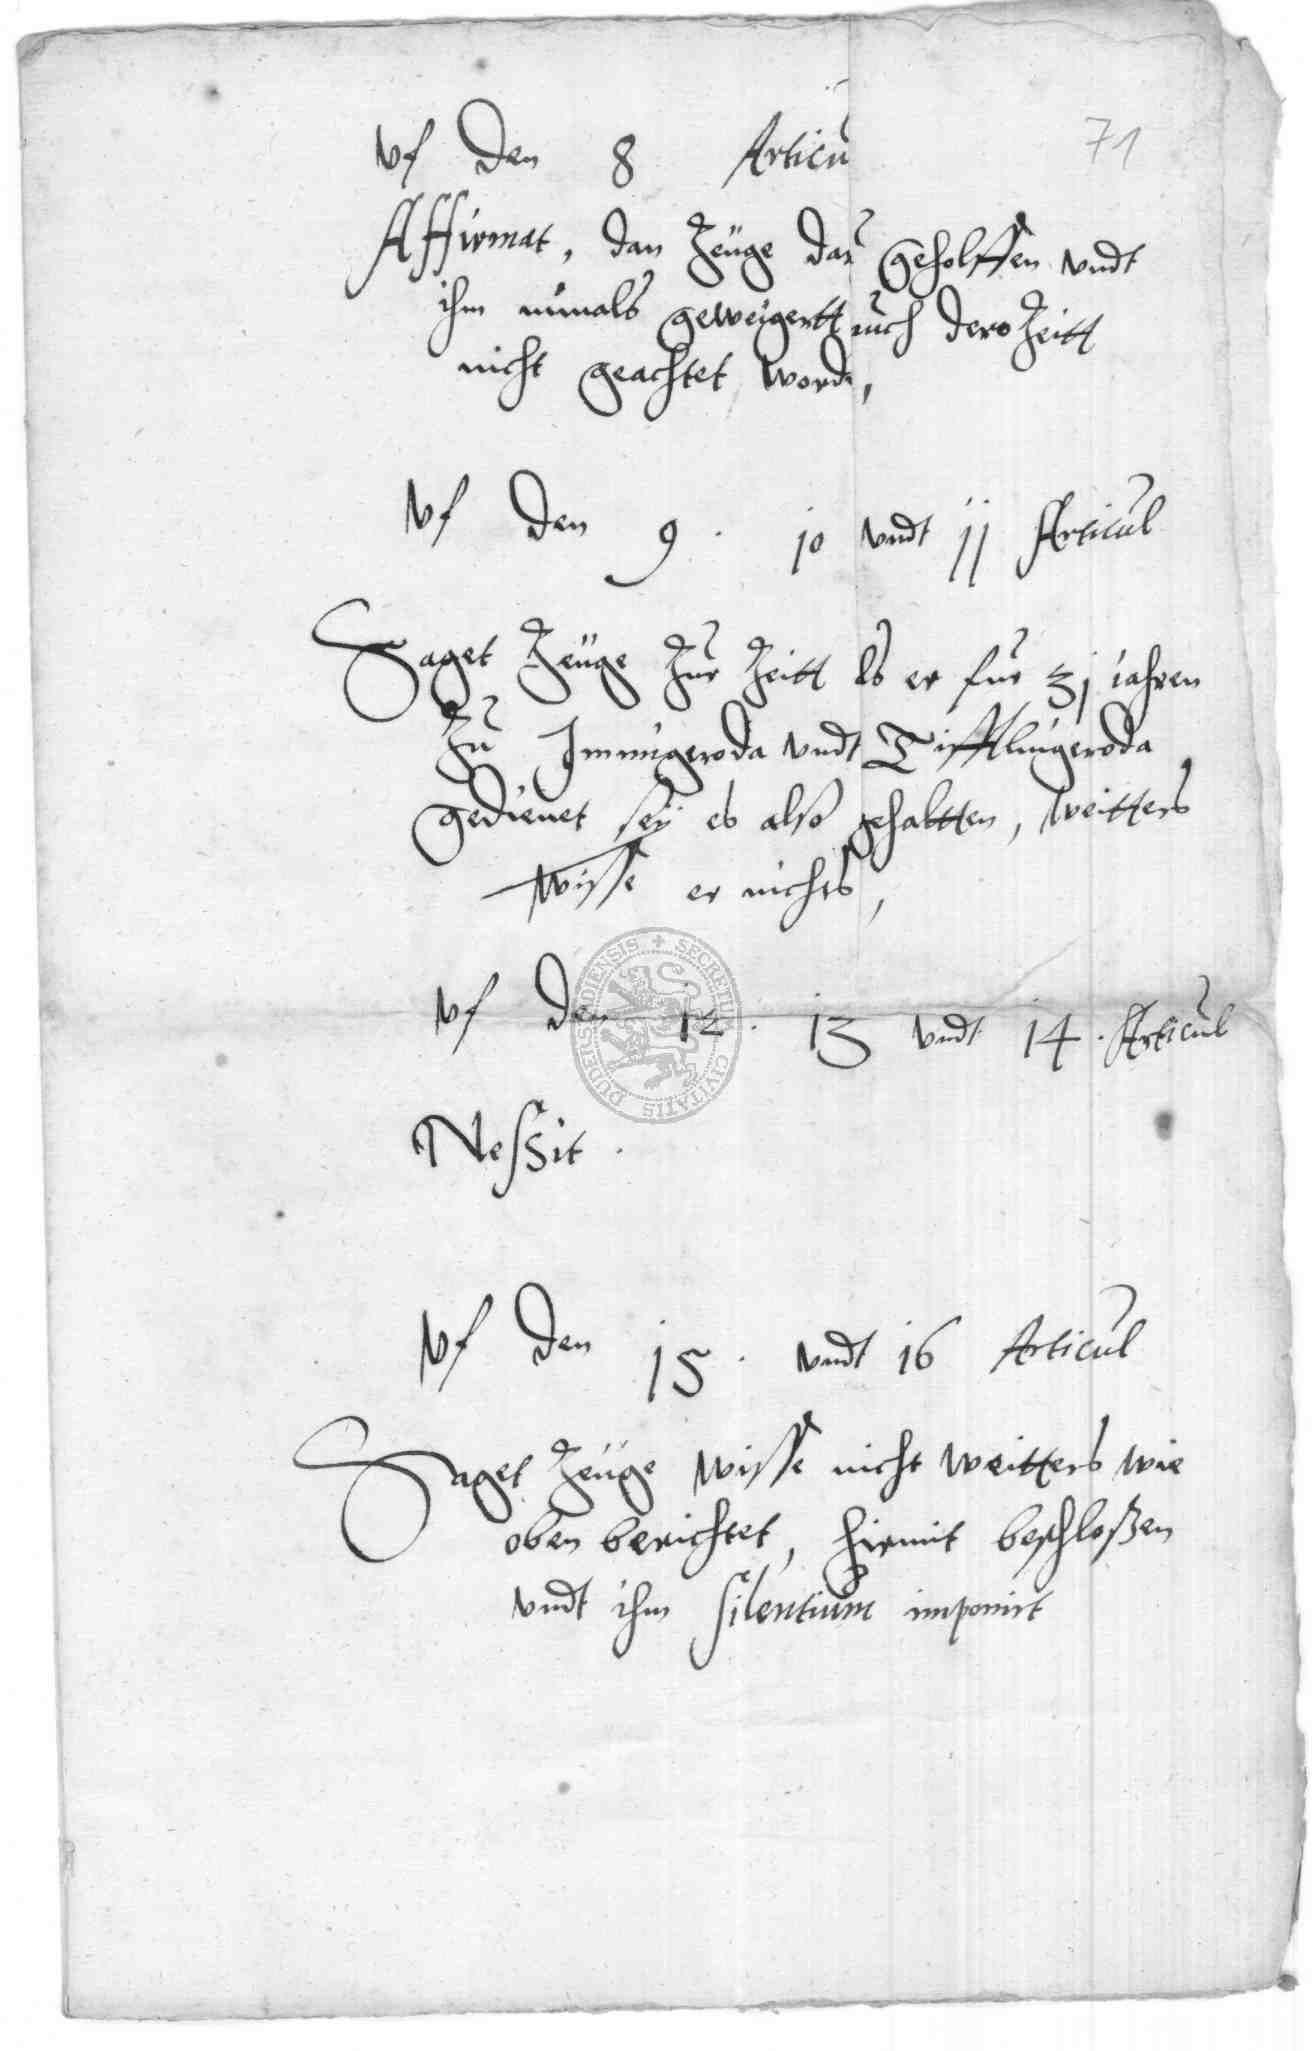 71
Vf den 8 Articu
Affirmat, dan Zeuge dar geholffen vndt
ihm nimals geweigertt auch dero Zeitt
nicht geachtet word,
Vf den 9. 10 vndt 11 Articul
Saget Zeuge Zur Zeitt als er fur 31 iahren
Zu Immigeroda vndt Tifftlingeroda
gedienet seÿ es also gehaltten, weitters
wisse er nichts,
Vf den 12. 13 vndt 14. Articul
Neßit.
Vf den 15. vndt 16 Articul
Saget Zeuge wisse nicht weitters wie
oben berichtet, hirmit beschloßen
vndt ihm silentium imponirt
SECRETUM CIVITATIS DUDERSTADIENSIS